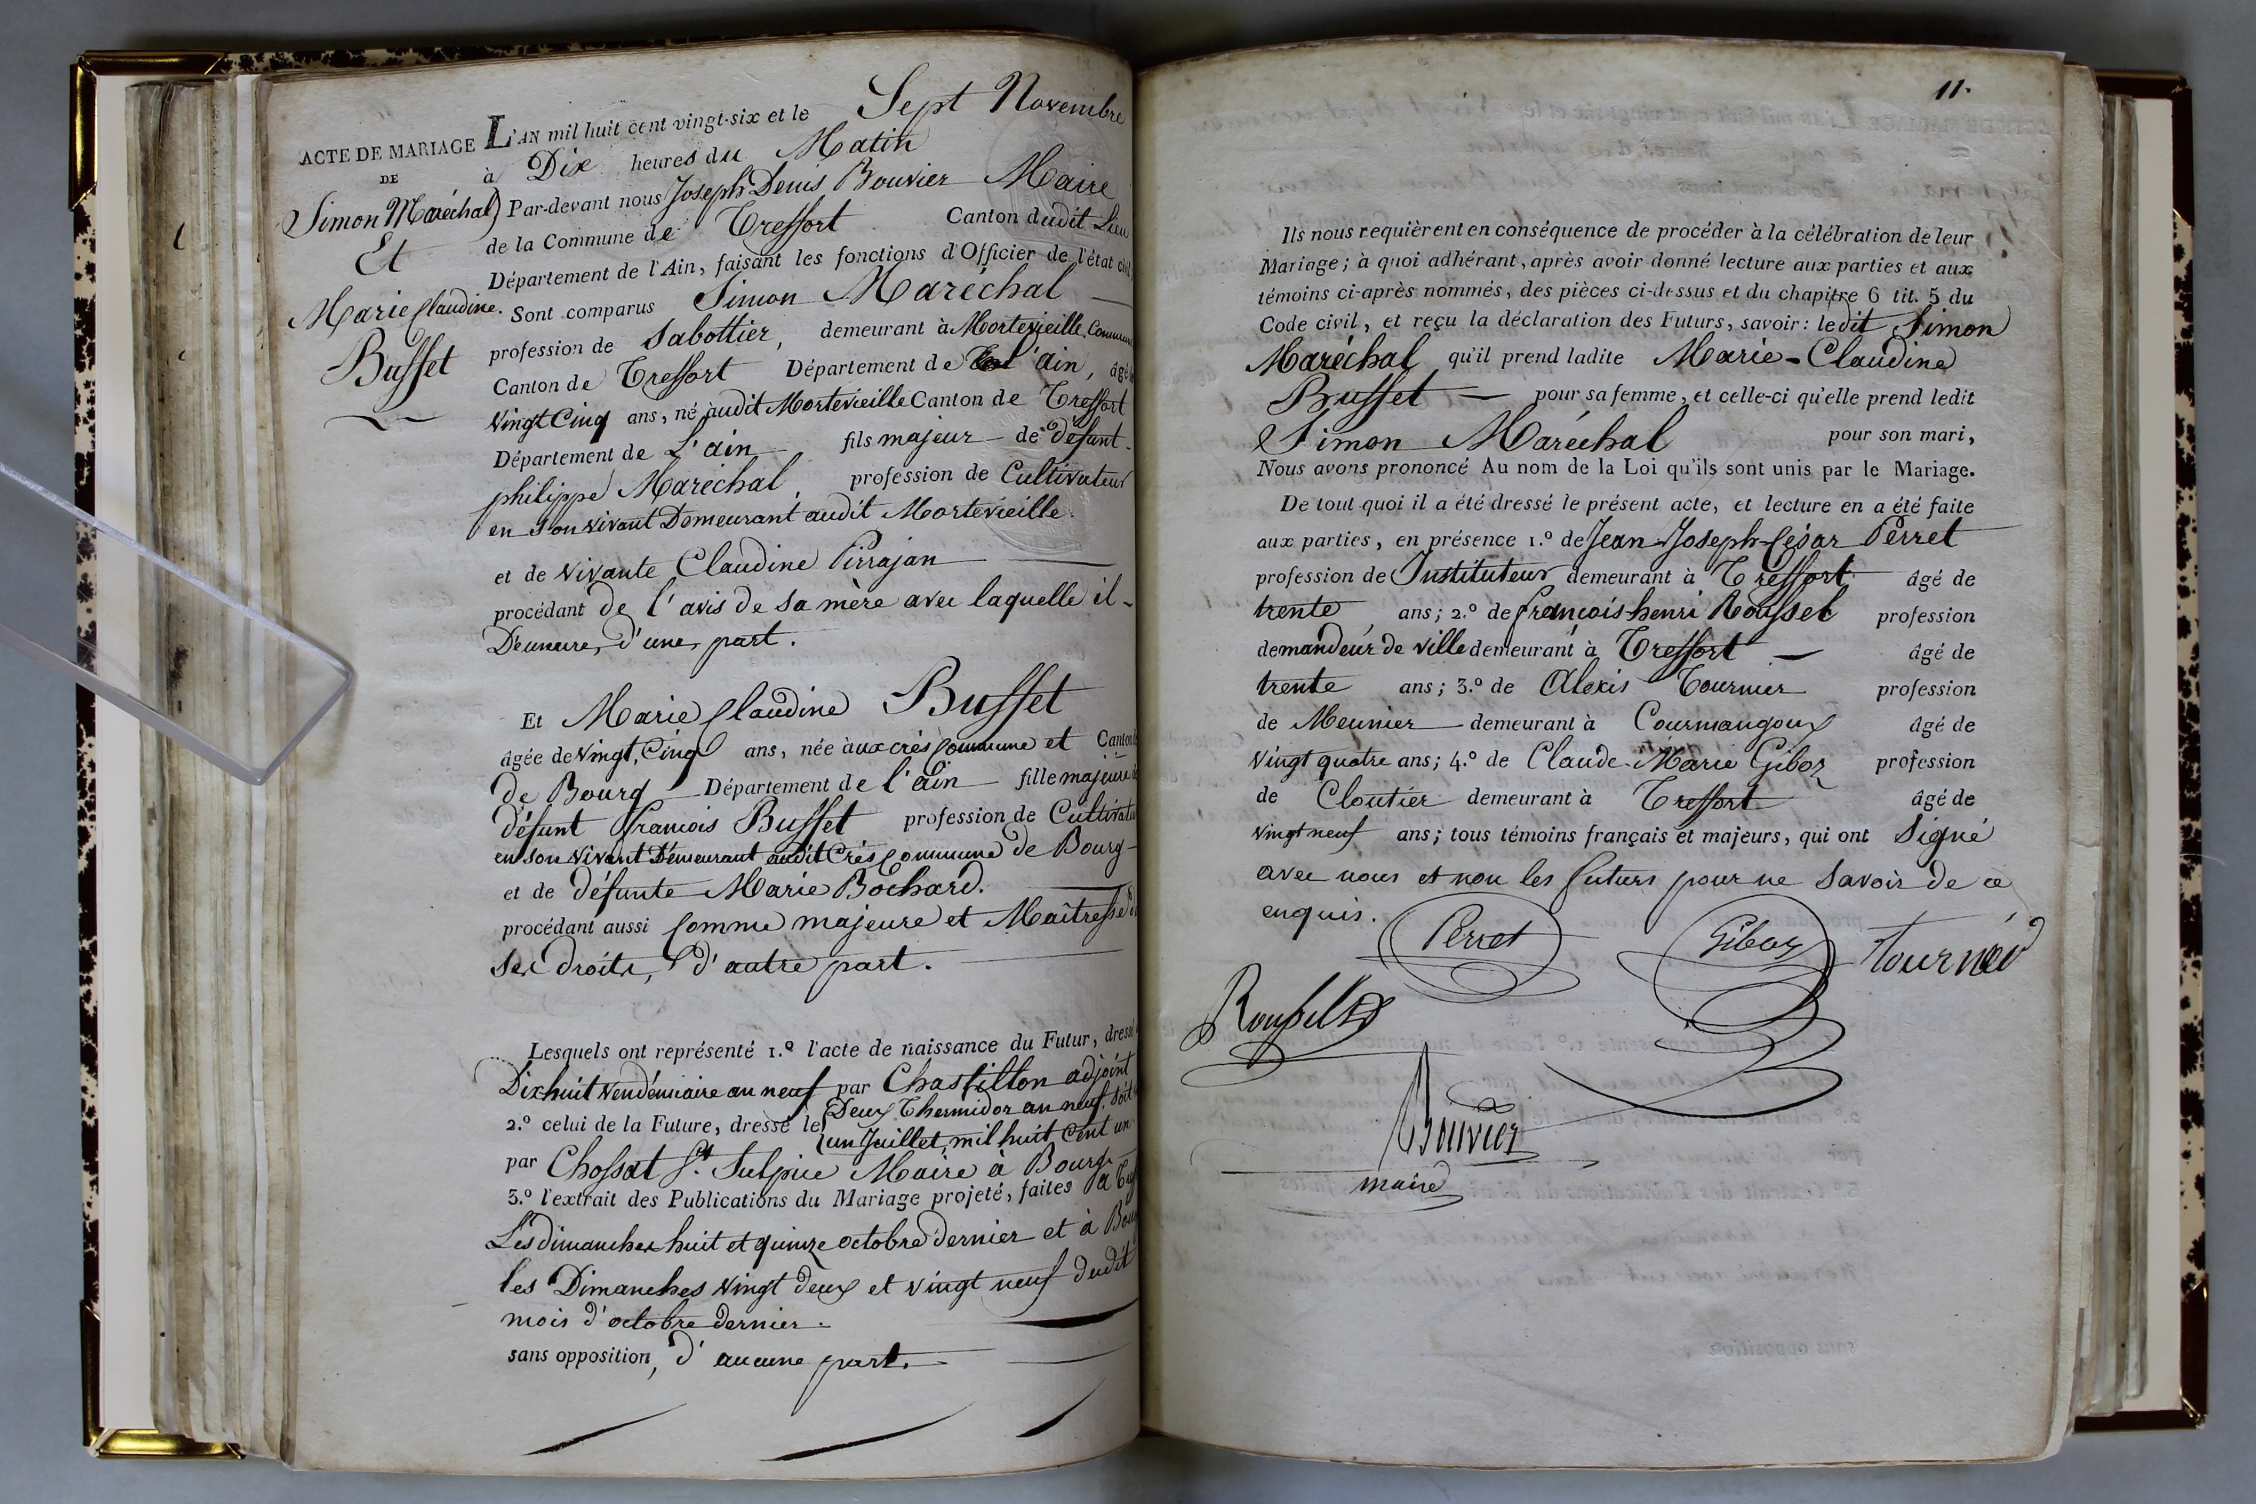 ACTE DE MARIAGE
DE
Simon Maréchal
Et
Marie Claudine
Buffet
L'AN mil huit cent vingt-six et le Sept Novembre
à Dix heures du Matin
Par-devant nous Joseph Denis Bouvier Maire
de la Commune de Treffort Canton dudit Lieu
Département de l'Ain, faisant les fonctions d'Officier de l'état civil
Sont comparus Simon Maréchal
profession de Sabottier, demeurant à Mortevieille Commune
Canton de Treffort Département de l'ain, âgé
vingt Cinq ans, né audit Mortevieille Canton de Treffort
Département de L'ain fils majeur de défunt
philippe Maréchal profession de Cultivateur
en son vivant Demeurant audit Mortevieille.
et de vivante Claudine Pirrajan
procédant de l'avis de sa mère avec laquelle il
Demeure, d'une part.
Et Marie Claudine Buffet
âgée de vingt Cinq ans, née aux crès Commune et Canton
de Bourg Département de l'ain fille majeure
défunt francois Buffet profession de Cultivateur
en son vivant Demeurant audit Crès Commune de Bourg
et de défunte Marie Bochard.
procédant aussi Comme majeure et Maîtresse de
ses droits, d'autre part.
Lesquels ont représenté 1.º l'acte de naissance du Futur, dressé
Dix huit vendémiaire an neuf par Chastillon adjoint
2.º celui de la Future, dressé le Deux Thermidor an neuf, soit
un Juillet, mil huit Cent un
par Chossat St. Sulpice Maire à Bourg
3.º l'extrait des Publications du Mariage projeté, faites à
Les dimanches huit et quinze octobre dernier et à Bourg
les Dimanches vingt deux et vingt neuf dudit
mois d'octobre dernier.
sans opposition, d'aucune part.
11.
Ils nous requièrent en conséquence de procéder à la célébration de leur
Mariage; à quoi adhérant, après avoir donné lecture aux parties et aux
témoins ci-après nommés, des pièces ci-dessus et du chapitre 6 tit. 5 du
Code civil, et reçu la déclaration des Futurs, savoir: ledit Simon
Maréchal qu'il prend ladite Marie-Claudine
Buffet pour sa femme, et celle-ci qu'elle prend ledit
Simon Maréchal pour son mari,
Nous avons prononcé Au nom de la Loi qu'ils sont unis par le Mariage.
De tout quoi il a été dressé le présent acte, et lecture en a été faite
aux parties, en présence 1.º de Jean-Joseph-César Perret
profession de Instituteur demeurant à Treffort âgé de
trente ans; 2.º de francois-henri Roussel profession
demandeur de ville demeurant à Treffort âgé de
trente ans; 3.º de Alexis Tournier profession
de Meunier demeurant à Courmangoux âgé de
vingt quatre ans; 4.º de Claude-Marie Giboz profession
de Cloutier demeurant à Treffort âgé de
vingt neuf ans; tous témoins français et majeurs, qui ont Signé
avec nous et non les futurs pour ne savoir de ce
enquis.
Perret
Giboz
tournié
Roussel
Bouvier
maire